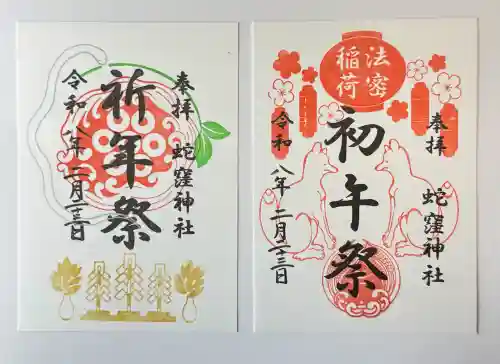 奉拝
蛇窪神社
祈年祭
令和八年二月二十三日
法密
稲荷
奉拝
蛇窪神社
初午祭
令和八年二月二十三日